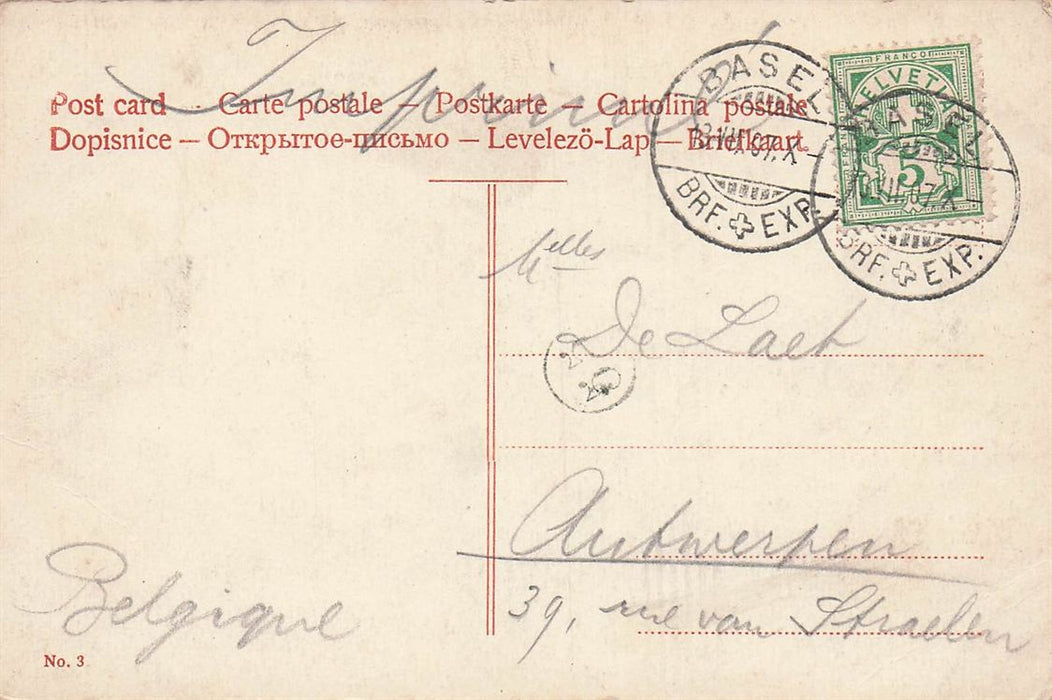 Imprimé
Post card - Carte postale – Postkarte – Cartolina postale
Dopisnice – Открытое-письмо – Levelező-Lap – Briefkaart.
BASEL
VII.07.X
BRF. EXP.
FRANCO
HELVETIA
5
BASEL
VII.07.X
BRF. EXP.
Melles
De Laet
Antwerpen
39, rue van Straelen
Belgique
No. 3